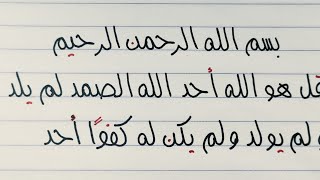 بسم الله الرحمن الرحيم
قل هو الله أحد الله الصمد لم يلد
و لم يولد ولم يكن له كفوًا أحد